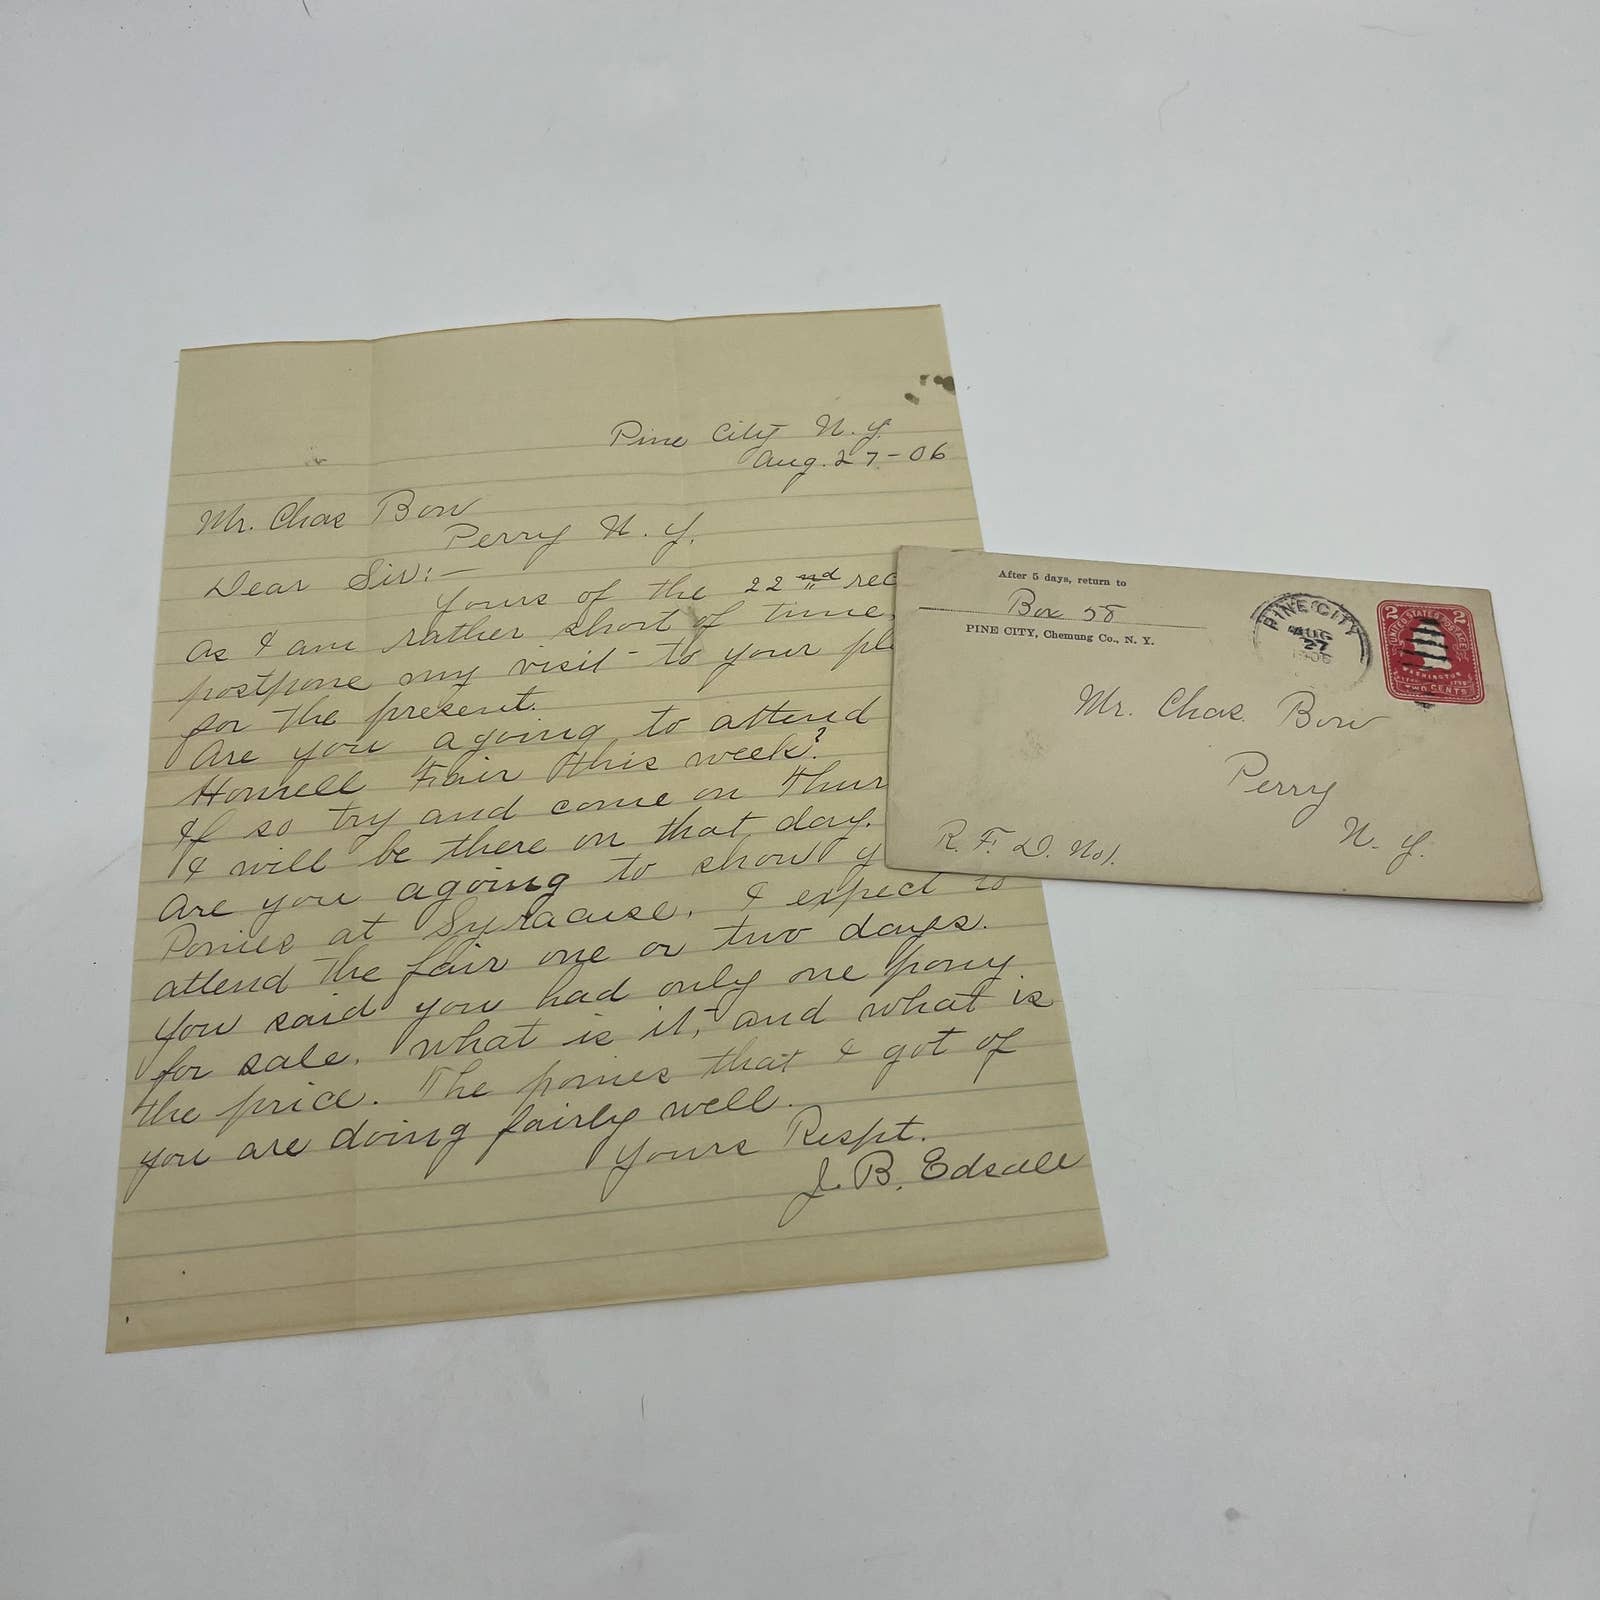 Pine City N. Y.
Aug. 27-06
Mr. Chas Bow
Perry N. Y.
Dear Sir:—
Yours of the 22nd rec
as I am rather short of time,
postpone my visit to your pl
for the present.
Are you agoing to attend
Hornell Fair this week?
If so try and come on Thur
I will be there on that day.
Are you agoing to show y
Ponies at Syracuse. I expect to
attend the fair one or two days.
You said you had only one pony
for sale. What is it, and what is
the price. The ponies that I got of
you are doing fairly well.
Yours Respt.
J. B. Edsall
After 5 days, return to
Box 58
PINE CITY, Chemung Co., N. Y.
PINE CITY
AUG
27
1906
2 UNITED STATES POSTAGE 2
WASHINGTON
TWO CENTS
Mr. Chas. Bow
Perry
N. Y.
R. F. D. No 1.